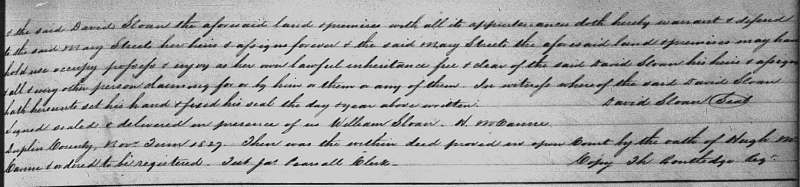 & the said David Sloan the aforesaid land & premises with all its appurtenances doth hereby warrant & defend
to the said Mary Streets her heirs & assigns forever & the said Mary Streets the aforesaid land & premises may have
hold use occupy possess & enjoy as her own lawful inheritance free & clear of the said David Sloan his heirs & assigns
& all & every other person claiming for or by him or them or any of them. In witness whereof the said David Sloan
hath hereunto set his hand & fixed his seal the day & year above written. David Sloan (Seal)
Signed sealed & delivered in presence of us William Sloan - H. McCanne
Duplin County, Nov. Term 1827. Then was the within deed proved in open Court by the oath of Hugh Mc
Canne & ordered to be registered. Test Jas Pearsall Clerk - Copy Th Routledge Regr